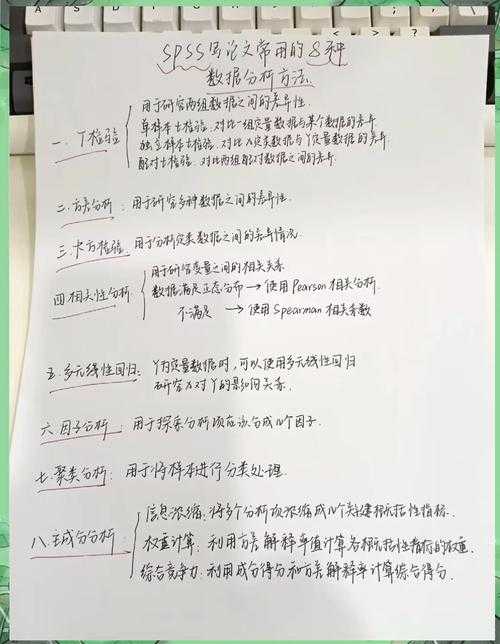 SPSS写论文常用的8种
数据分析方法
一. T检验
用于研究两组数据之间的差异性.
单样本t检验. 对比一组定量数据与某个数据的差异
独立样本t检验. 对比X定类数据与Y定量数据的差异
配对t检验. 对比两组配对数据之间的差异.
二. 方差分析: 用于研究多种数据之间的差异性.
三. 卡方检验. 用于分析定类数据之间的差异情况.
四. 相关性分析.
用于研究变量之间的相关关系
数据满足正态分布 → 使用Pearson相关分析.
不满足 → 使用Spearman相关系数
五. 多元线性回归. Y为定量数据时, 可以使用多元线性回归
研究X对Y的影响关系.
六. 因子分析: 用于探索分析项应该分成几个因子.
七. 聚类分析: 用于将样本进行分类处理.
八. 主成分分析:
信息浓缩: 将多个分析项浓缩成几个关键概括性指标.
权重计算: 利用方差解释率值计算各概括性指标的权重.
综合竞争力: 利用成分得分和方差解释率计算综合得分.